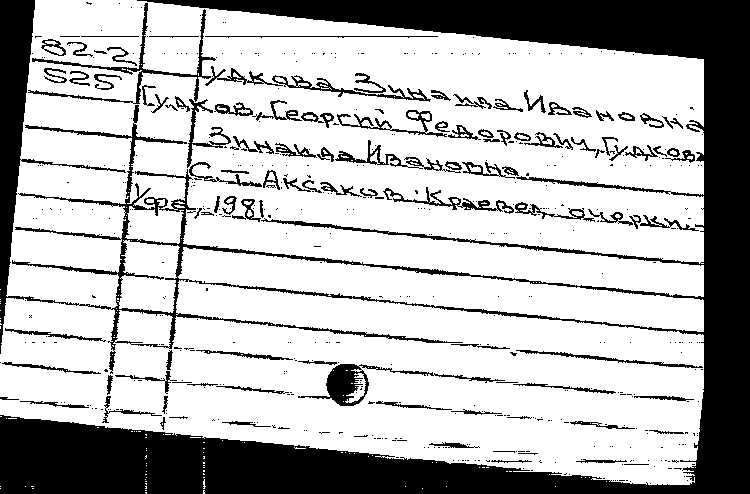 82-2
525
Гудкова, Зинаида Ивановна
Гудков, Георгий Федорович, Гудкова
Зинаида Ивановна.
С.Т. Аксаков: Краевед. очерки.-
Уфа, 1981.